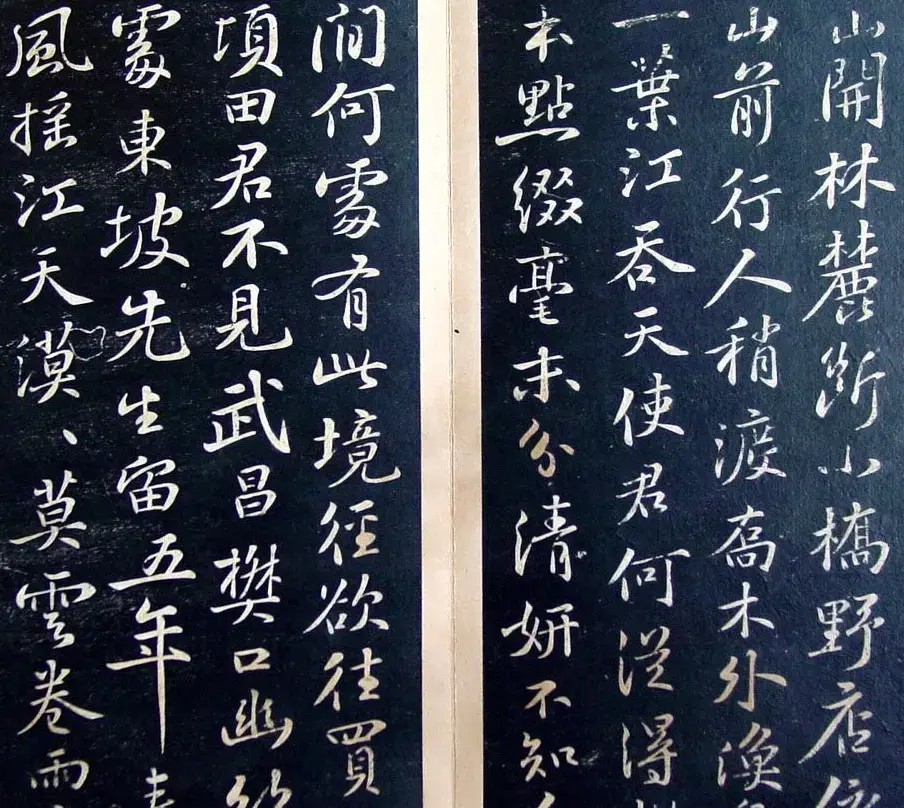 山開林麓斷小橋野店依
山前行人稍渡喬木外漁
一葉江吞天使君何從得
本點綴毫末分清妍不知
間何處有此境徑欲往買
頃田君不見武昌樊口幽
處東坡先生留五年春
風搖江天漠、莫雲卷雨